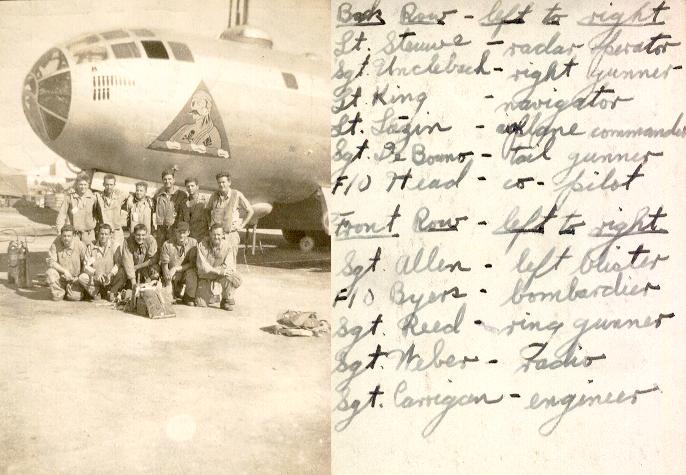 Back Row - left to right
Lt. Stauwe - radar operator
Sgt. Unclebach - right gunner
Lt. King - navigator
Lt. Lazin - airplane commander
Sgt. De Bouno - tail gunner
F/O Head - co-pilot
Front Row - left to right
Sgt. Allen - left blister
F/O Byers - bombardier
Sgt. Reed - ring gunner
Sgt. Weber - radio
Sgt. Carrigan - engineer